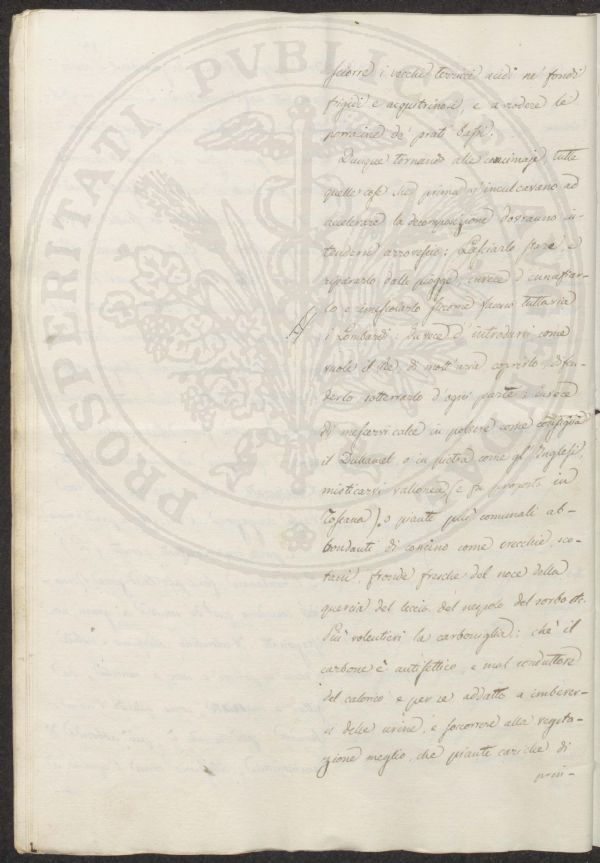 PROSPERITATI PVBLICAE AVGENDAE
sciorre i vecchi terricci acidi ne' fondi
frigidi e acquitrinosi, e a rodere le
porracine de' prati bassi.
Dunque tornando alle concimaje, tutte
quelle cose che prima s'inculcavano ad
accelerare la decomposizione dovranno in-
tendersi arrovescio: Lasciarlo stare e
ripararlo dalle piogge, invece d'
lo e rimescolarlo siccome fanno tuttavia
i Lombardi: Invece d'introdurvi come
vuole il Re di molt'aria coprirlo, difen-
derlo sotterrarlo d'ogni parte: invece
di mescervi calce in polvere come consiglia
il Duhamel, o in pietra come gl'Inglesi,
misticarvi vallonea (e fu proposta in
Toscana), o piante più comunali ab-
bondanti di concino come
fronde fresche del noce della
quercia del leccio del nespolo del sorbo etc.
Più volentieri la carboniglia: chè il
carbone è antisettico, e mal conduttore
del calorico e per se addatto a imbever-
si delle urine, e soccorrere alla vegeta-
zione meglio, che piante cariche di
prin-